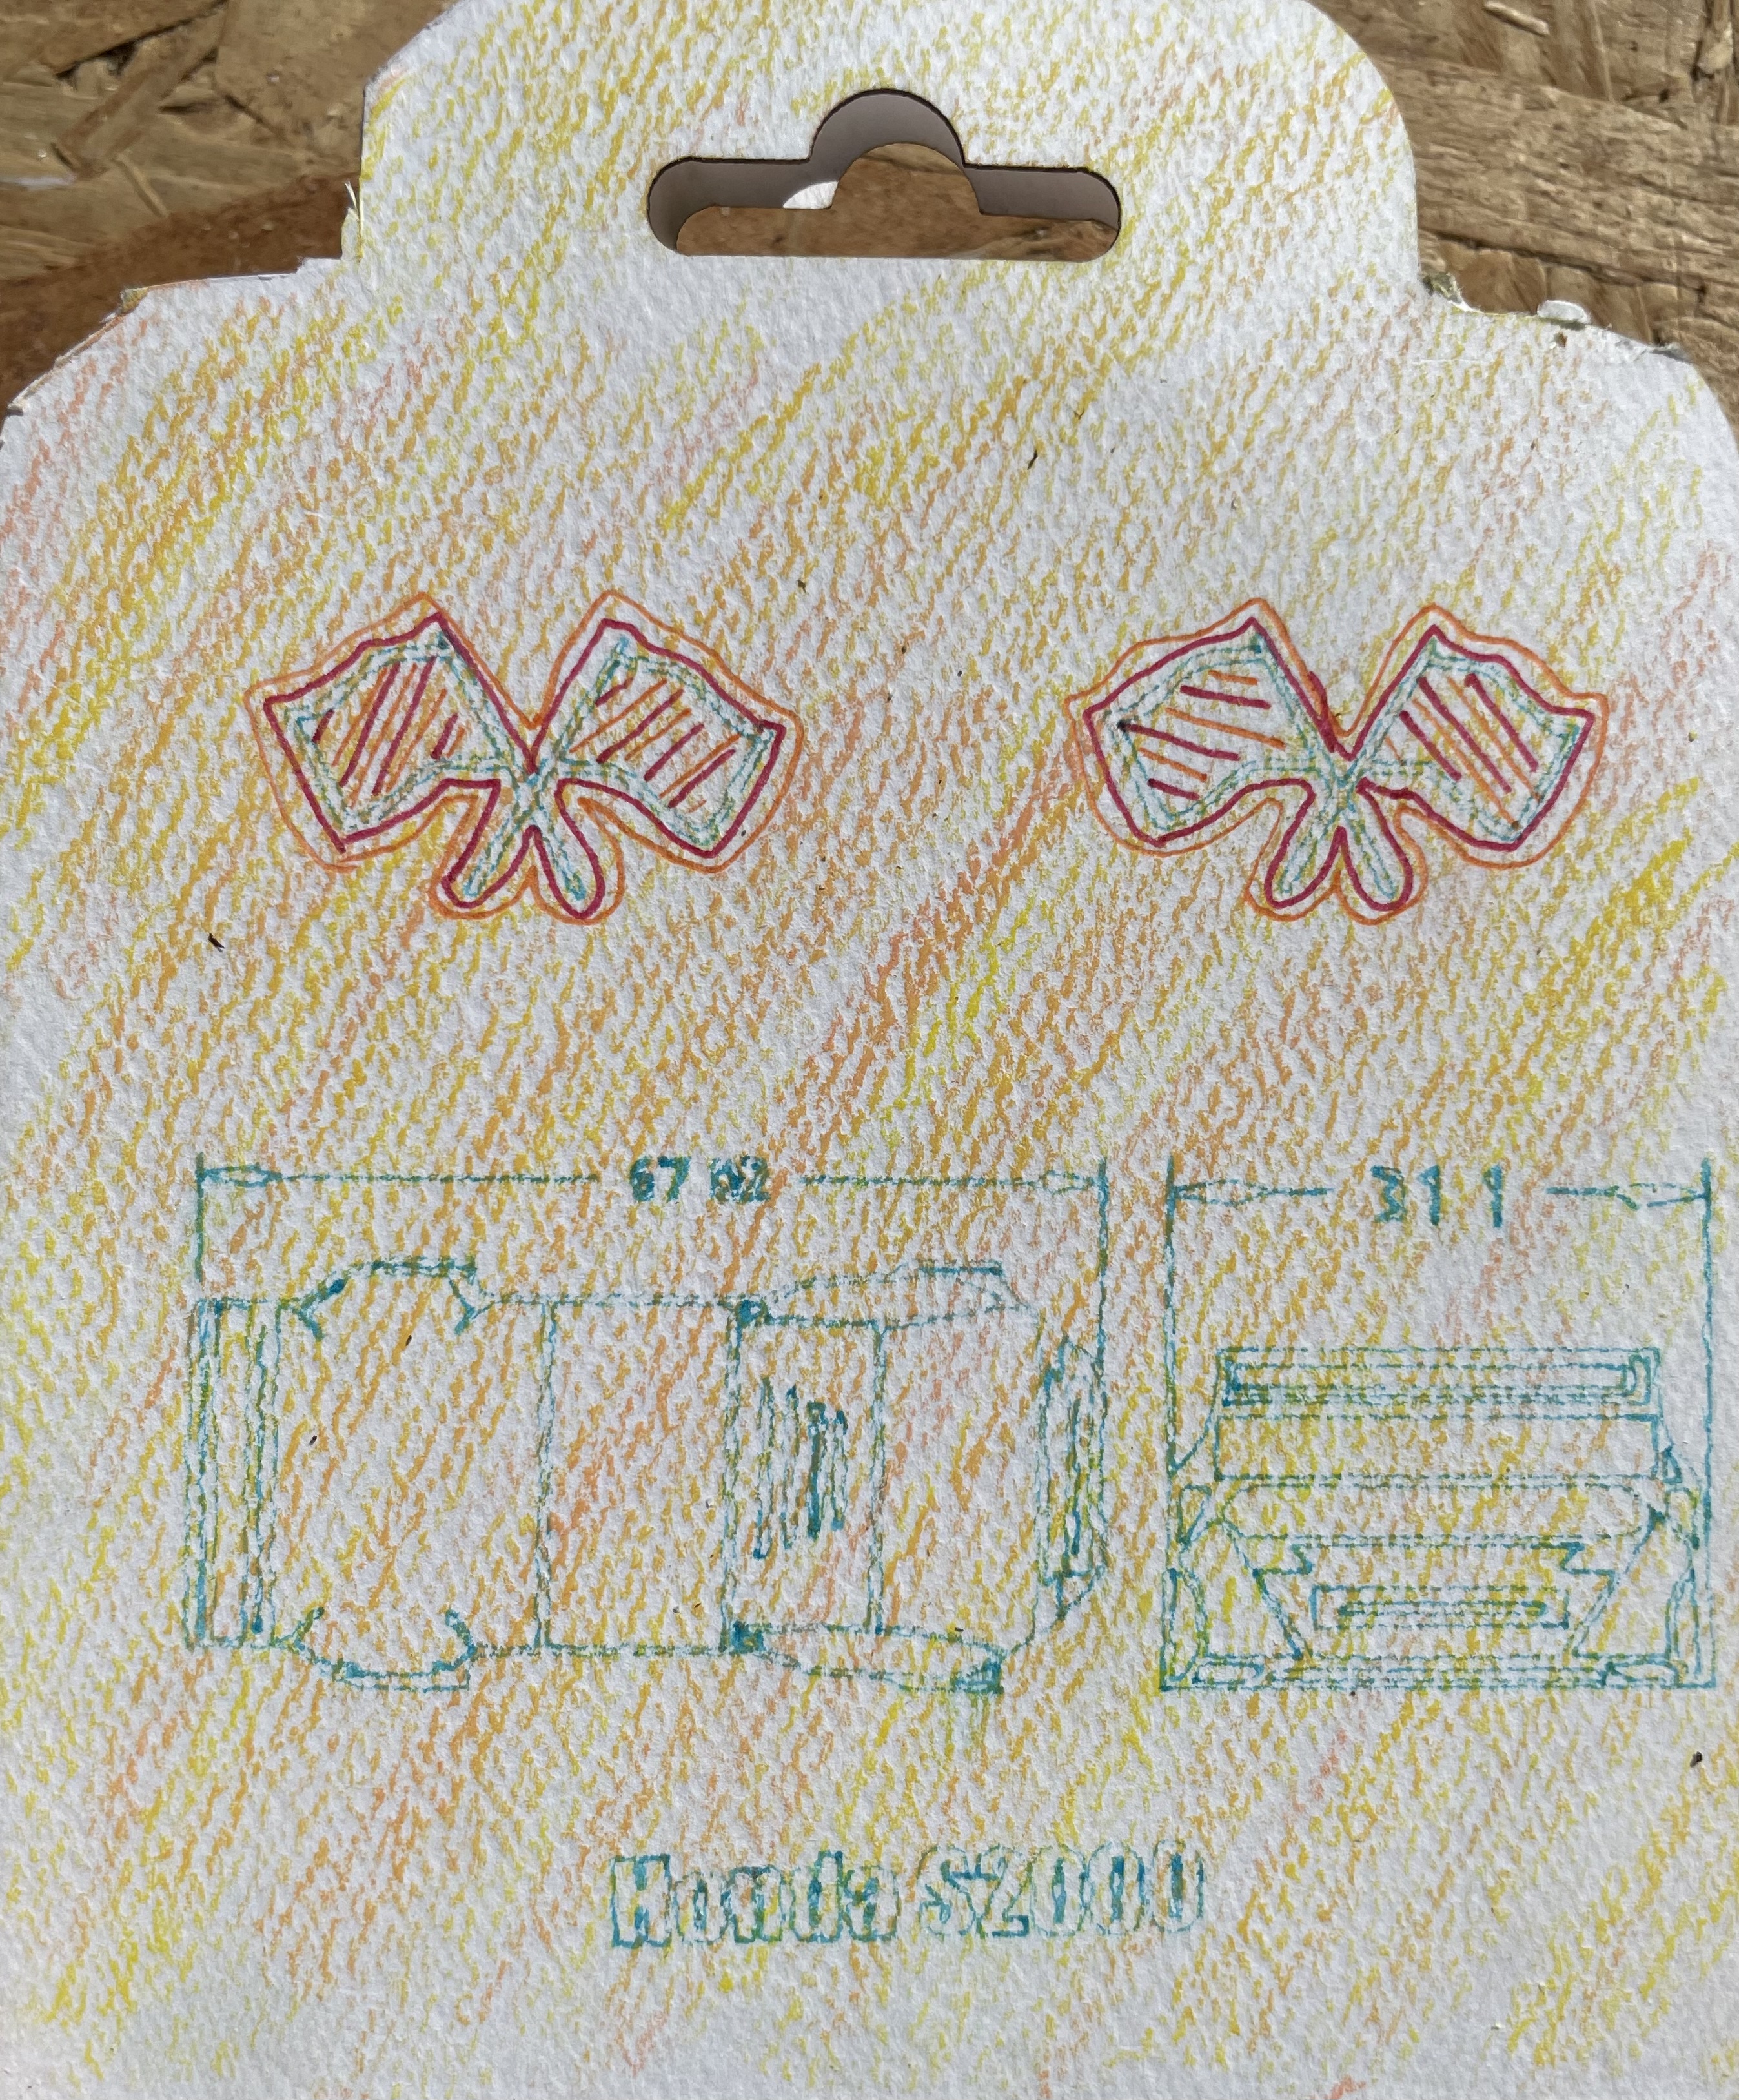 67 82 31 1
Honda S2000